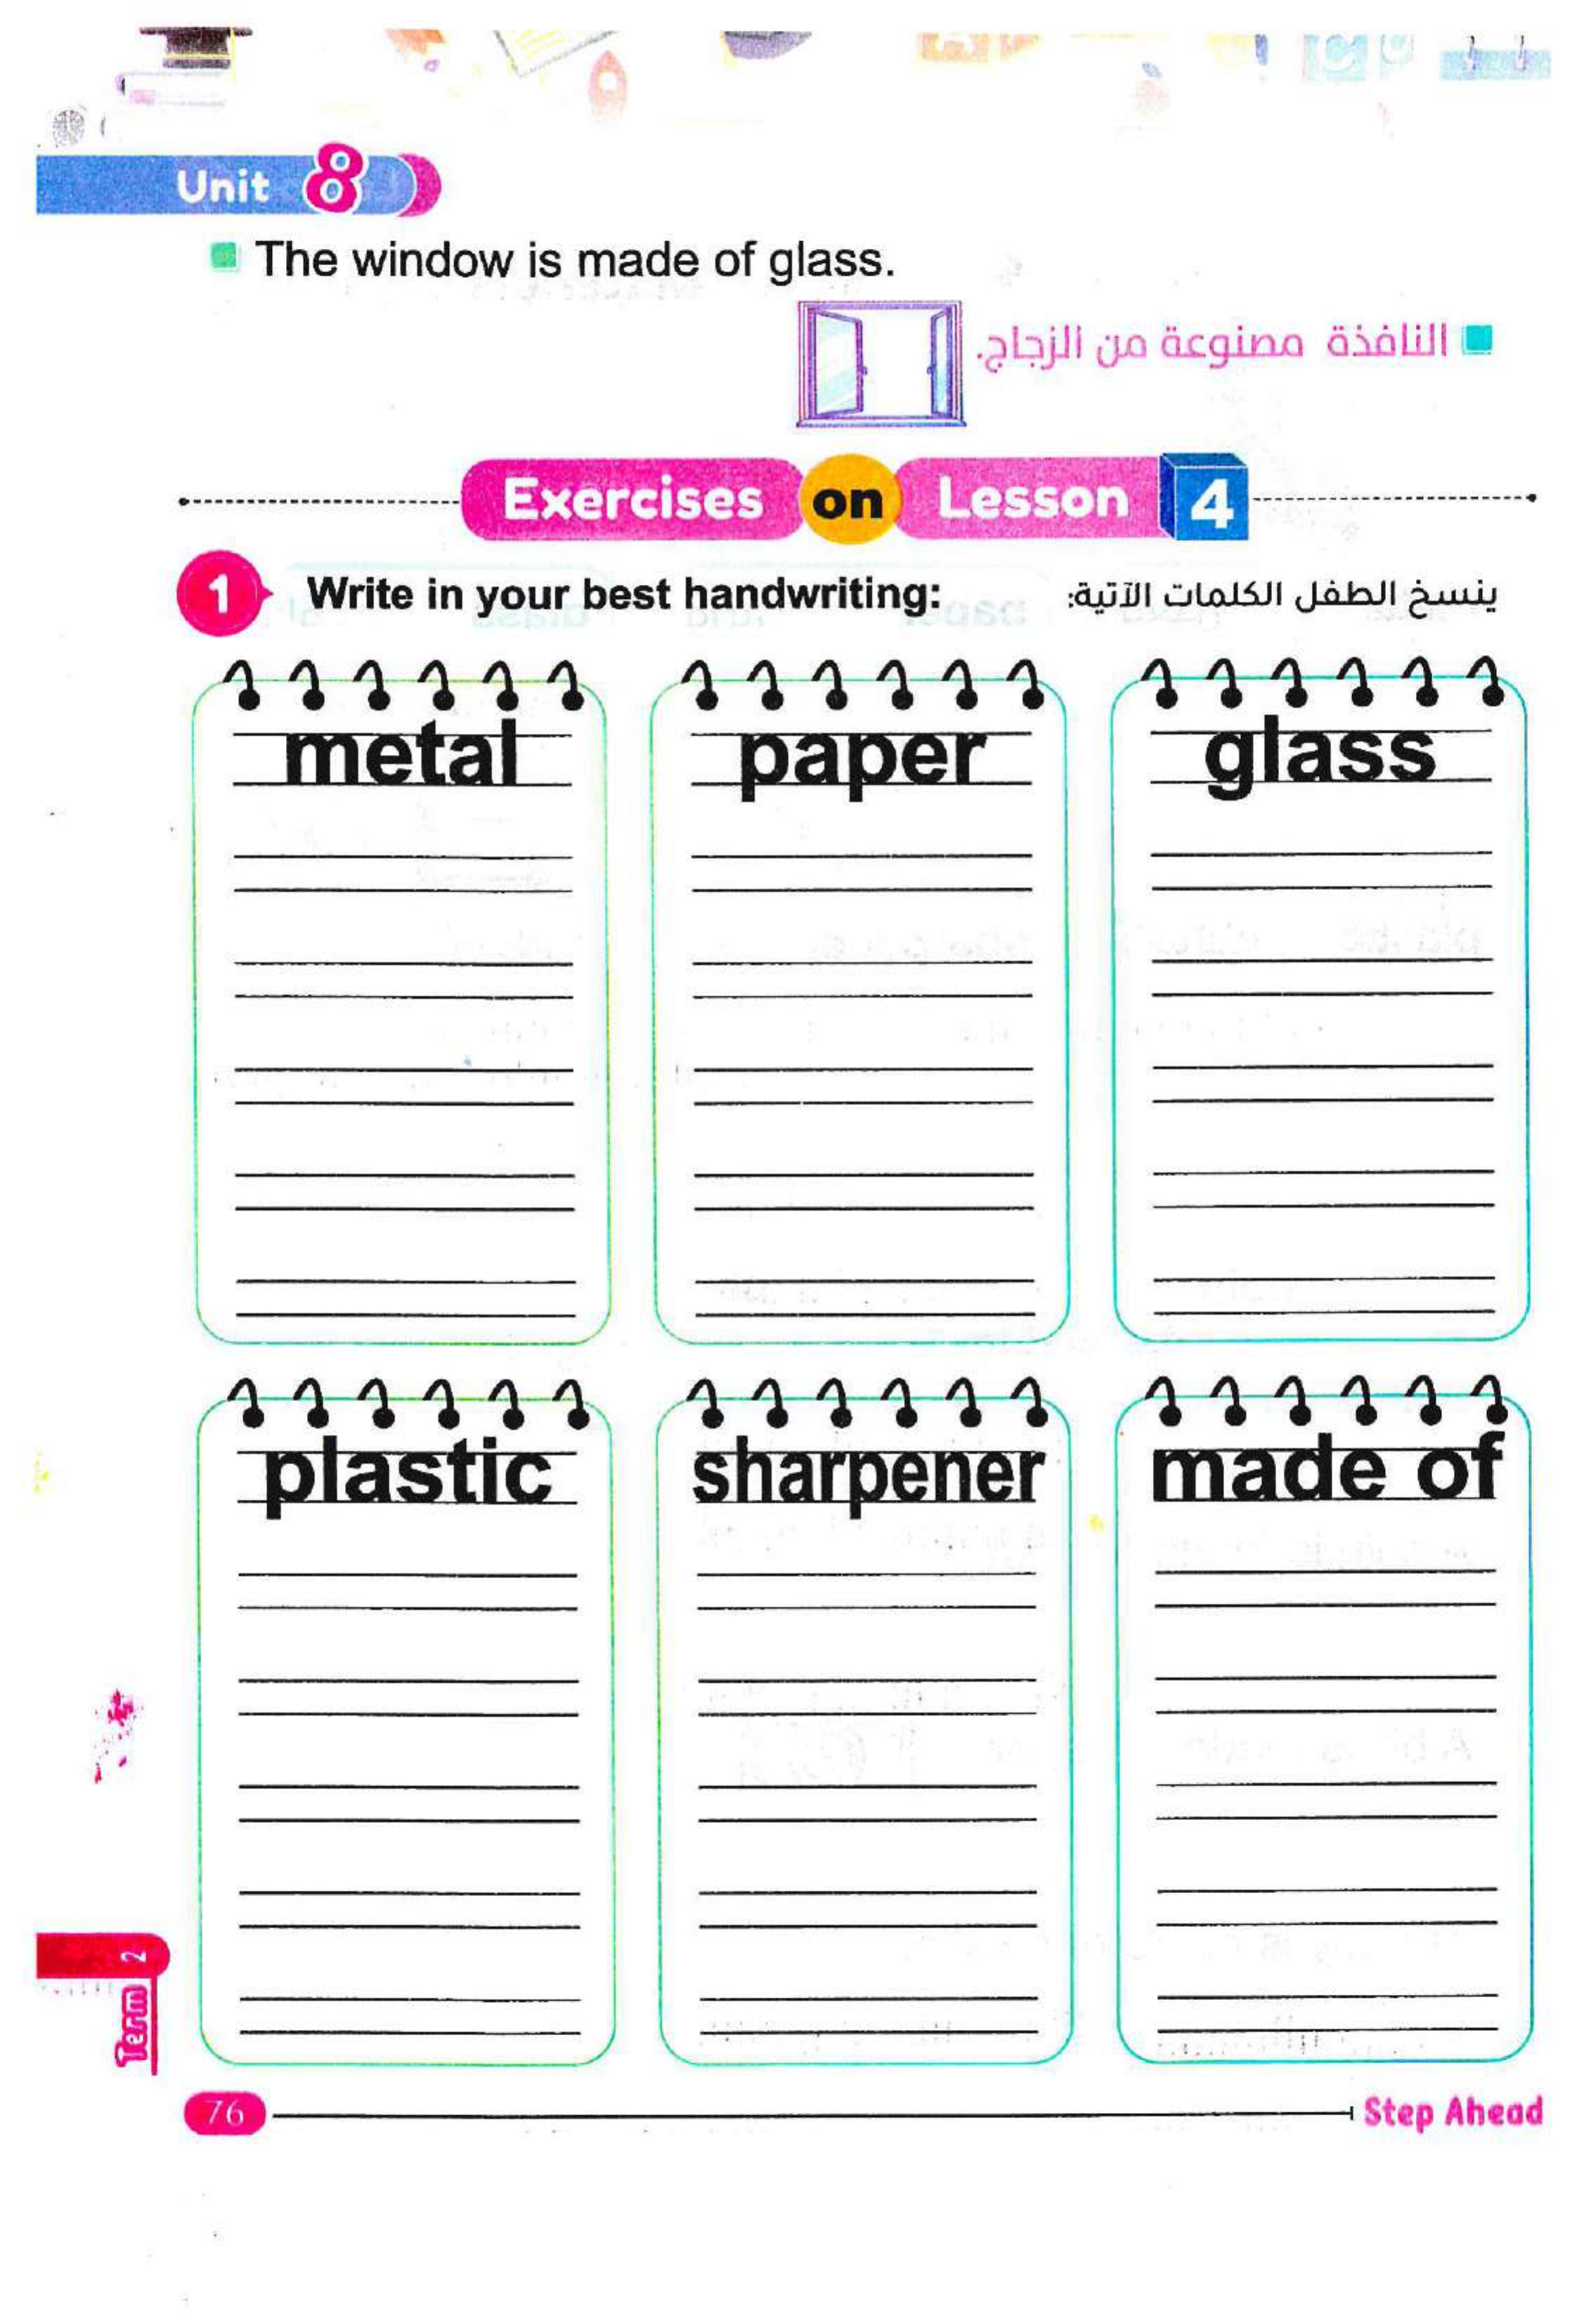 Unit 8
The window is made of glass.
النافذة مصنوعة من الزجاج.
Exercises on Lesson 4
1 Write in your best handwriting: ينسخ الطفل الكلمات الآتية:
metal paper glass
plastic sharpener made of
Term 2
76 Step Ahead